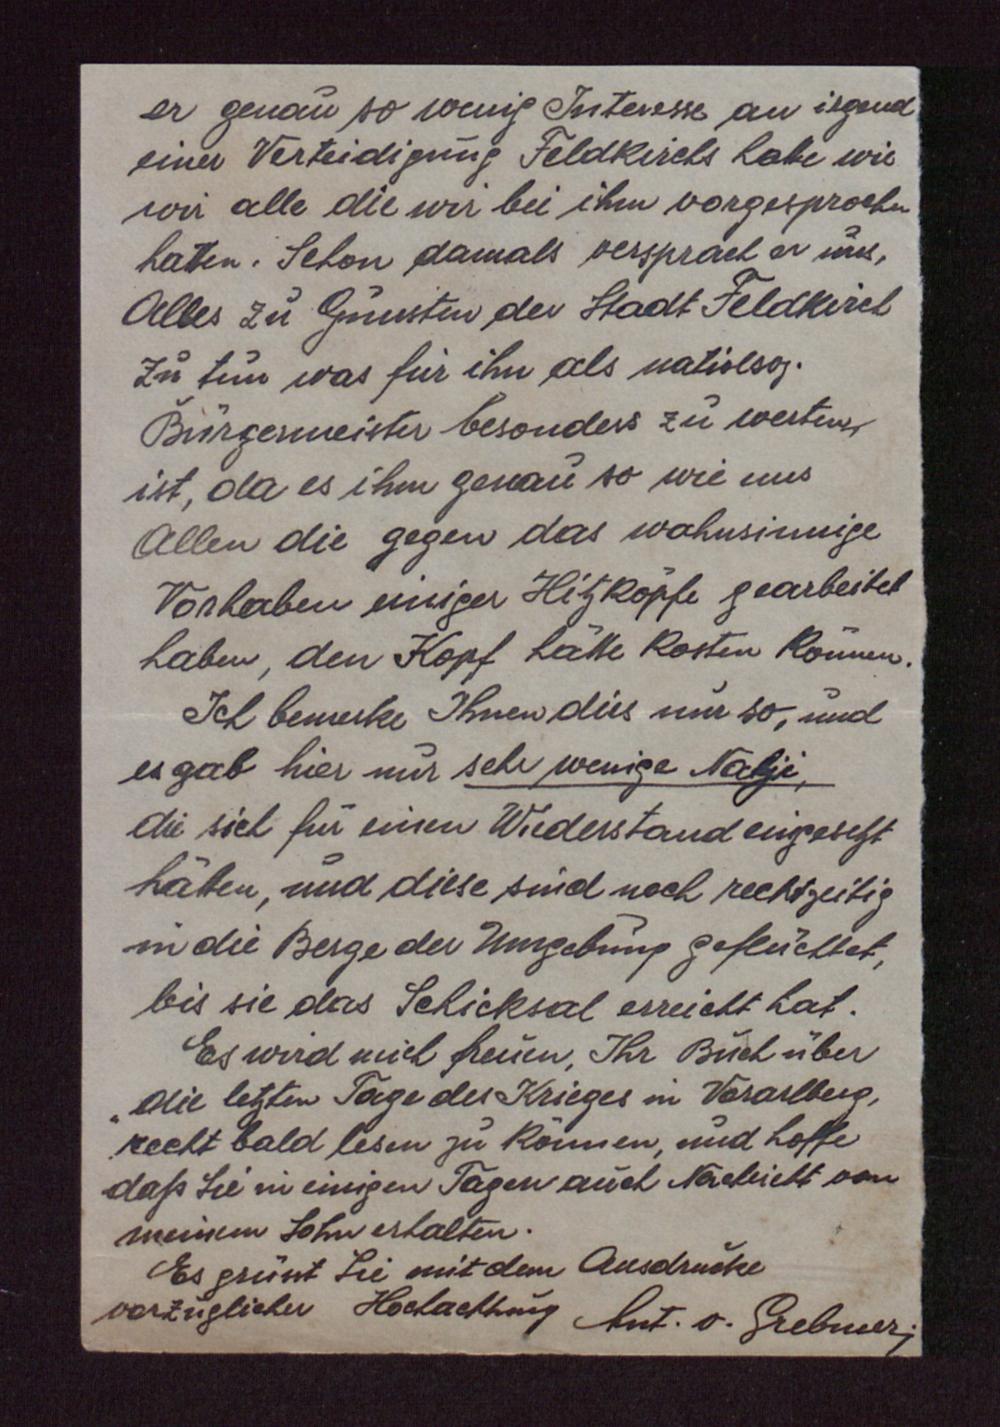 er genau so wenig Interesse an irgend
einer Verteidigung Feldkirchs habe wie
wir alle die wir bei ihm vorgesprochen
hatten. Schon damals versprach er uns,
Alles zu Gunsten der Stadt Feldkirch
zu tun was für ihn als natiolsoz.
Bürgermeister besonders zu werten
ist, da es ihm genau so wie uns
Allen die gegen das wahnsinnige
Vorhaben einiger Hitzköpfe gearbeitet
haben, den Kopf hätte kosten können.
Ich bemerke Ihnen dies nur so, und
es gab hier nur sehr wenige Nazji,
die sich für einen Wiederstand eingesetzt
hätten, und diese sind noch rechtzeitig
in die Berge der Umgebung geflüchtet,
bis sie das Schicksal erreicht hat.
Es wird mich freuen, Ihr Buch über
"die letzten Tage des Krieges in Vorarlberg,
recht bald lesen zu können, und hoffe
daß Sie in einigen Tagen auch Nachricht von
meinem Sohn erhalten.
Es grüsst Sie mit dem Ausdrucke
vorzüglicher Hochachtung Ant. v. Grebmer